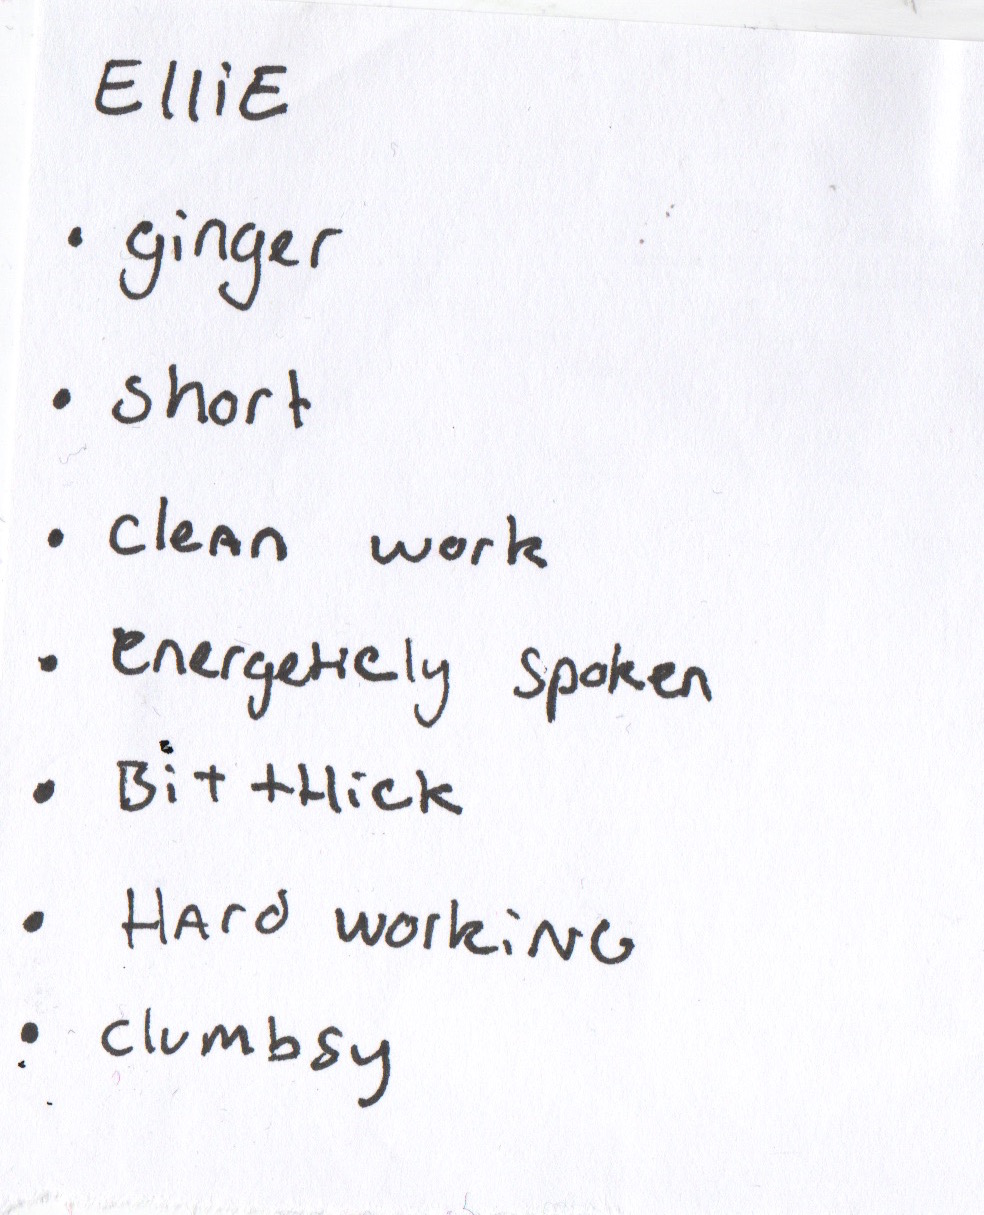 ElliE
• ginger
• short
• cleAn work
• energeticly spoken
• Bit tHick
• HArd workiNG
• clumbsy